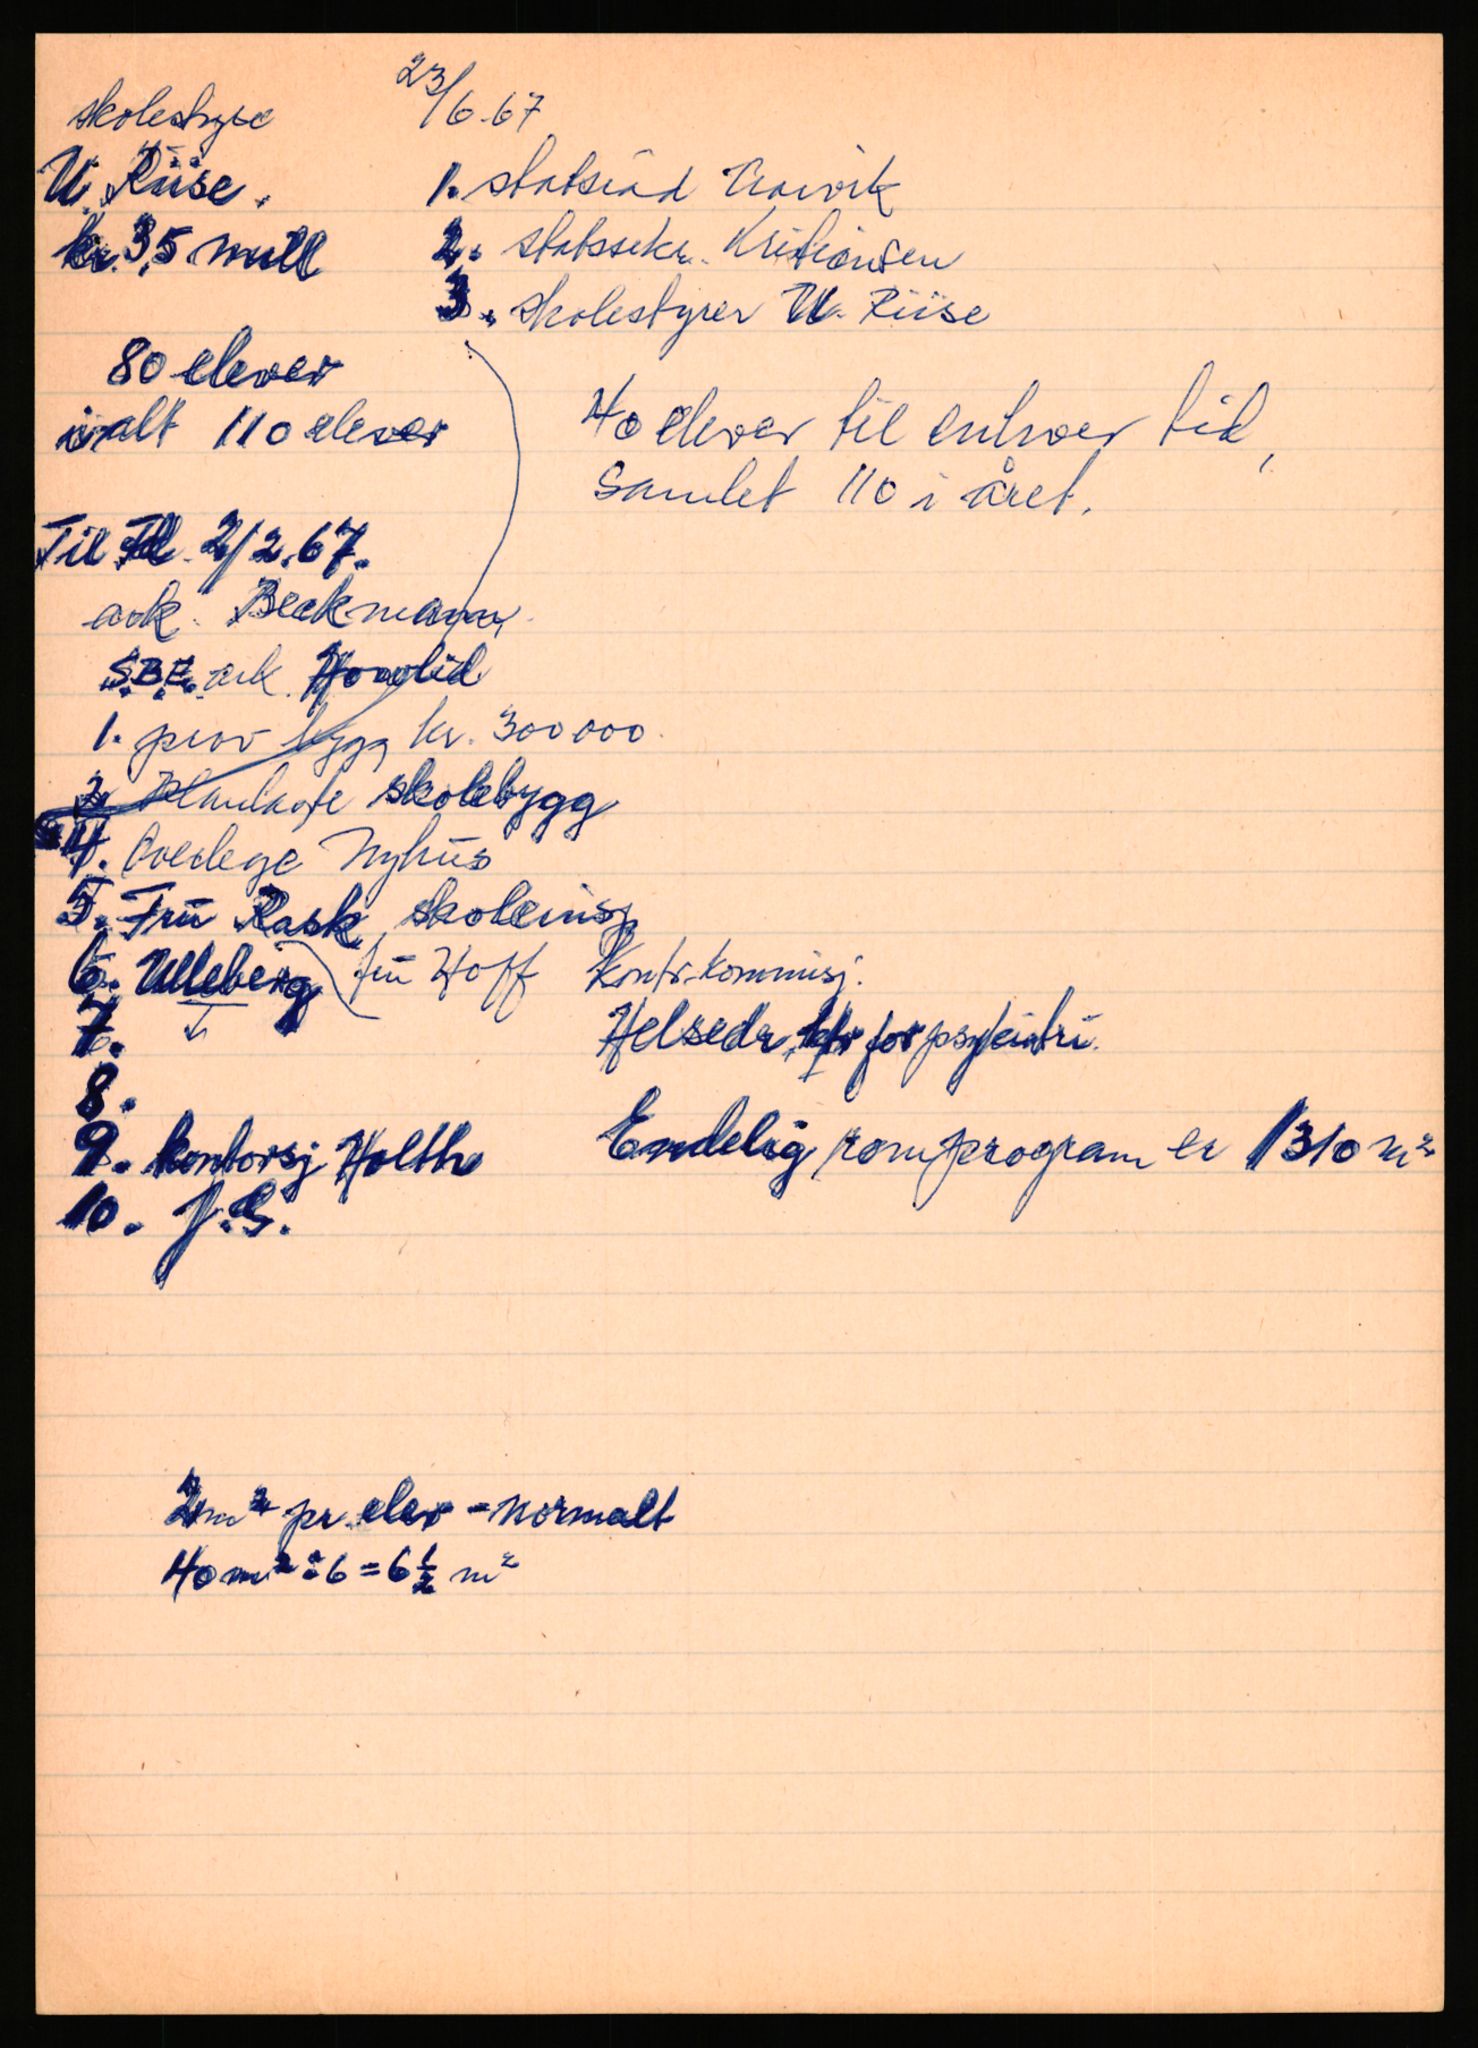 23/6-67
skolestyre
U. Riise.
kr. 3,5 mill
1. statsråd Trovik
2. statssekr. Kristiansen
3. skolestyrer U. Riise
80 elever
i alt 110 elever
40 elever til enhver tid,
Samlet 110 i året.
Til Fl. 2/2.67.
ark. Beckmann
SBE. ark. Hovlid
1. prov bygg kr. 300 000.
2. skolebygg
4. Overlege Nyhus
5. Fru Rask, skoleinsp
6. Ulleberg fru Hoff Kontr.kommisj.
7. Helsedir. ktr for psykiatri.
8.
9. kontorsj Holth Endelig romprogram er 1310 m²
10. J.G.
2m² pr. elev - normalt
40 m² : 6 = 6 1/2 m²